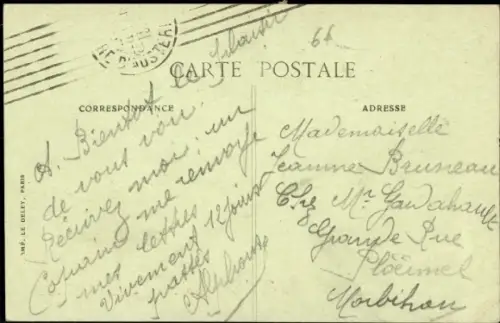 66
CARTE POSTALE
CORRESPONDANCE
A. Bientot le plaisir
de vous voir
Récrivez moi. un
Copain me renvoye
mes lettres 12 jours
Vivement
passés
Alphonse
ADRESSE
Mademoiselle
Jeanne Bruneau
Chez Mr
Grande Rue
Ploërmel
Morbihan
IMP. LE DELEY, PARIS